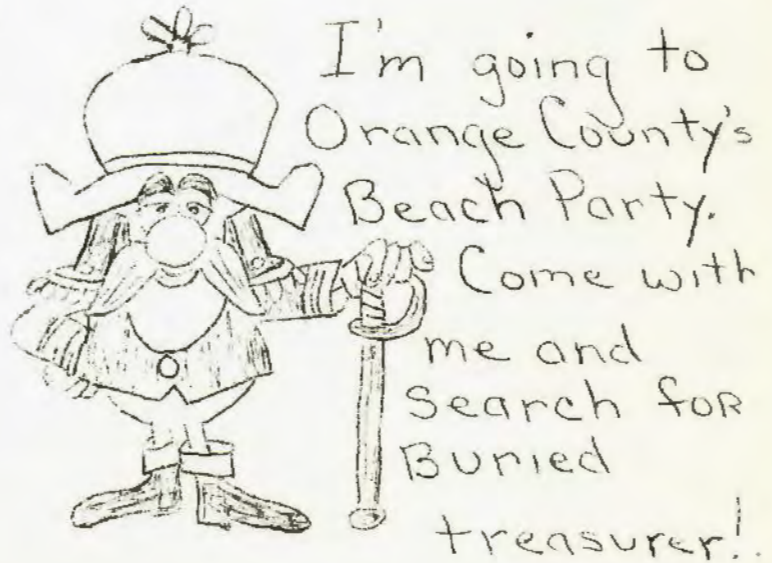 I'm going to
Orange County's
Beach Party.
Come with
me and
search foR
Buried
treasurer!